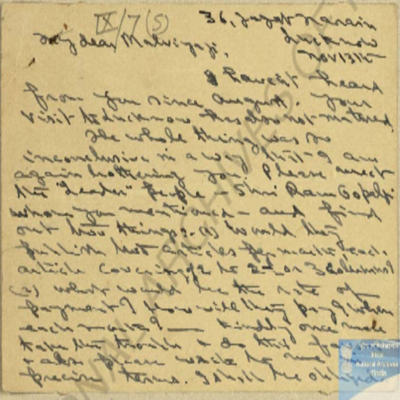 IX/7(5)
36, Jagat Narain
Lucknow
Nov 13th
My dear Malviyaji,
I haven't heard
from you since August. Your
visit to Lucknow has not matured.
The whole thing was so
inconclusive in a way that I am
again bothering you. Please meet
the "Leader" people — Shri Ram Gopalji
whom you mentioned — and find
out two things. (1) Would they
publish two articles per month each
article covering 2 to 2½ or 3 columns?
(2) What would be the rate of
payment? How will they pay? When
each month? — Kindly once more
take the trouble & do this
& also please write to me in
precise terms. I shall be obliged